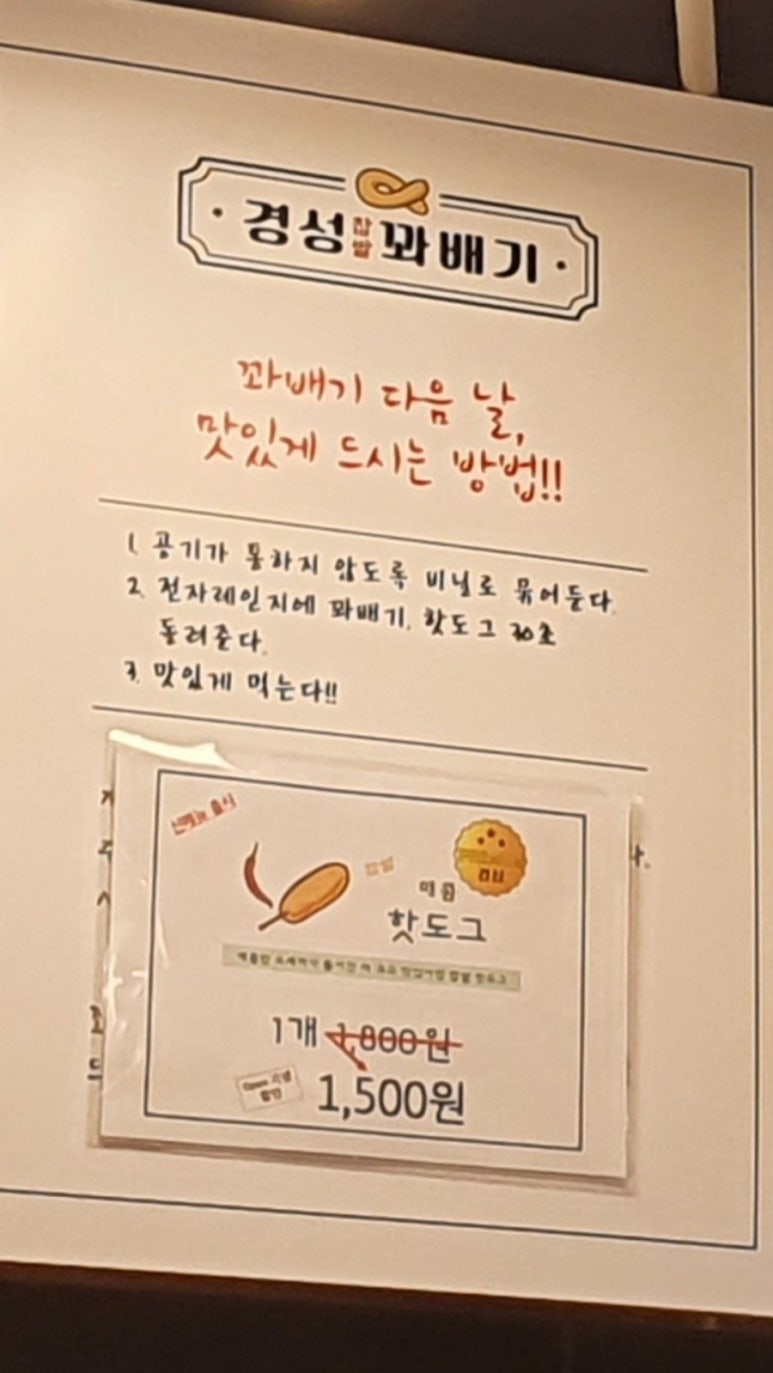 경성찹쌀꽈배기
꽈배기 다음 날,
맛있게 드시는 방법!!
1. 공기가 통하지 않도록 비닐로 묶어둔다.
2. 전자레인지에 꽈배기, 핫도그 30초
돌려준다.
3. 맛있게 먹는다!!
신메뉴 출시
찹쌀
매콤
핫도그
1개 1,800원
Open 기념
할인
1,500원